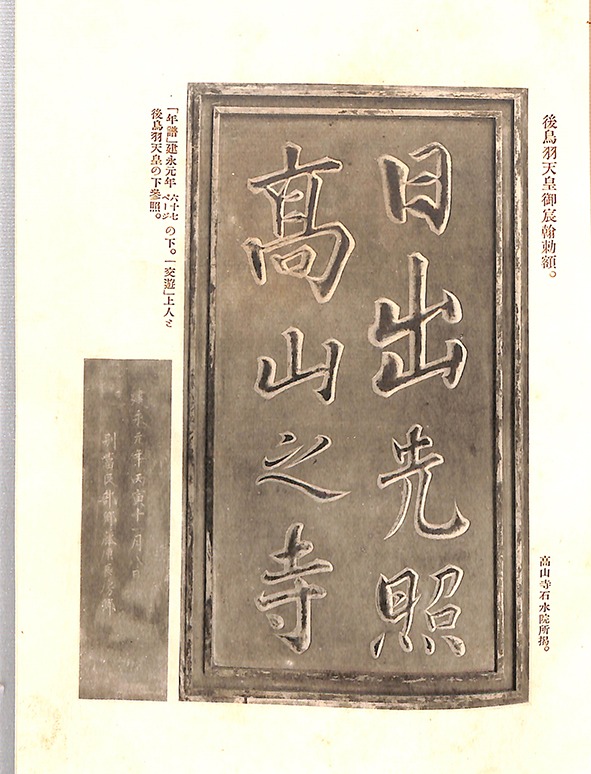 後鳥羽天皇御宸翰勅額。
高山寺石水院所揭。
日出先照
高山之寺
「年譜」建永元年六十七ページの下。「交遊」上人と
後鳥羽天皇の下參照。
建永元年丙寅十一月 日
別當民部卿藤原